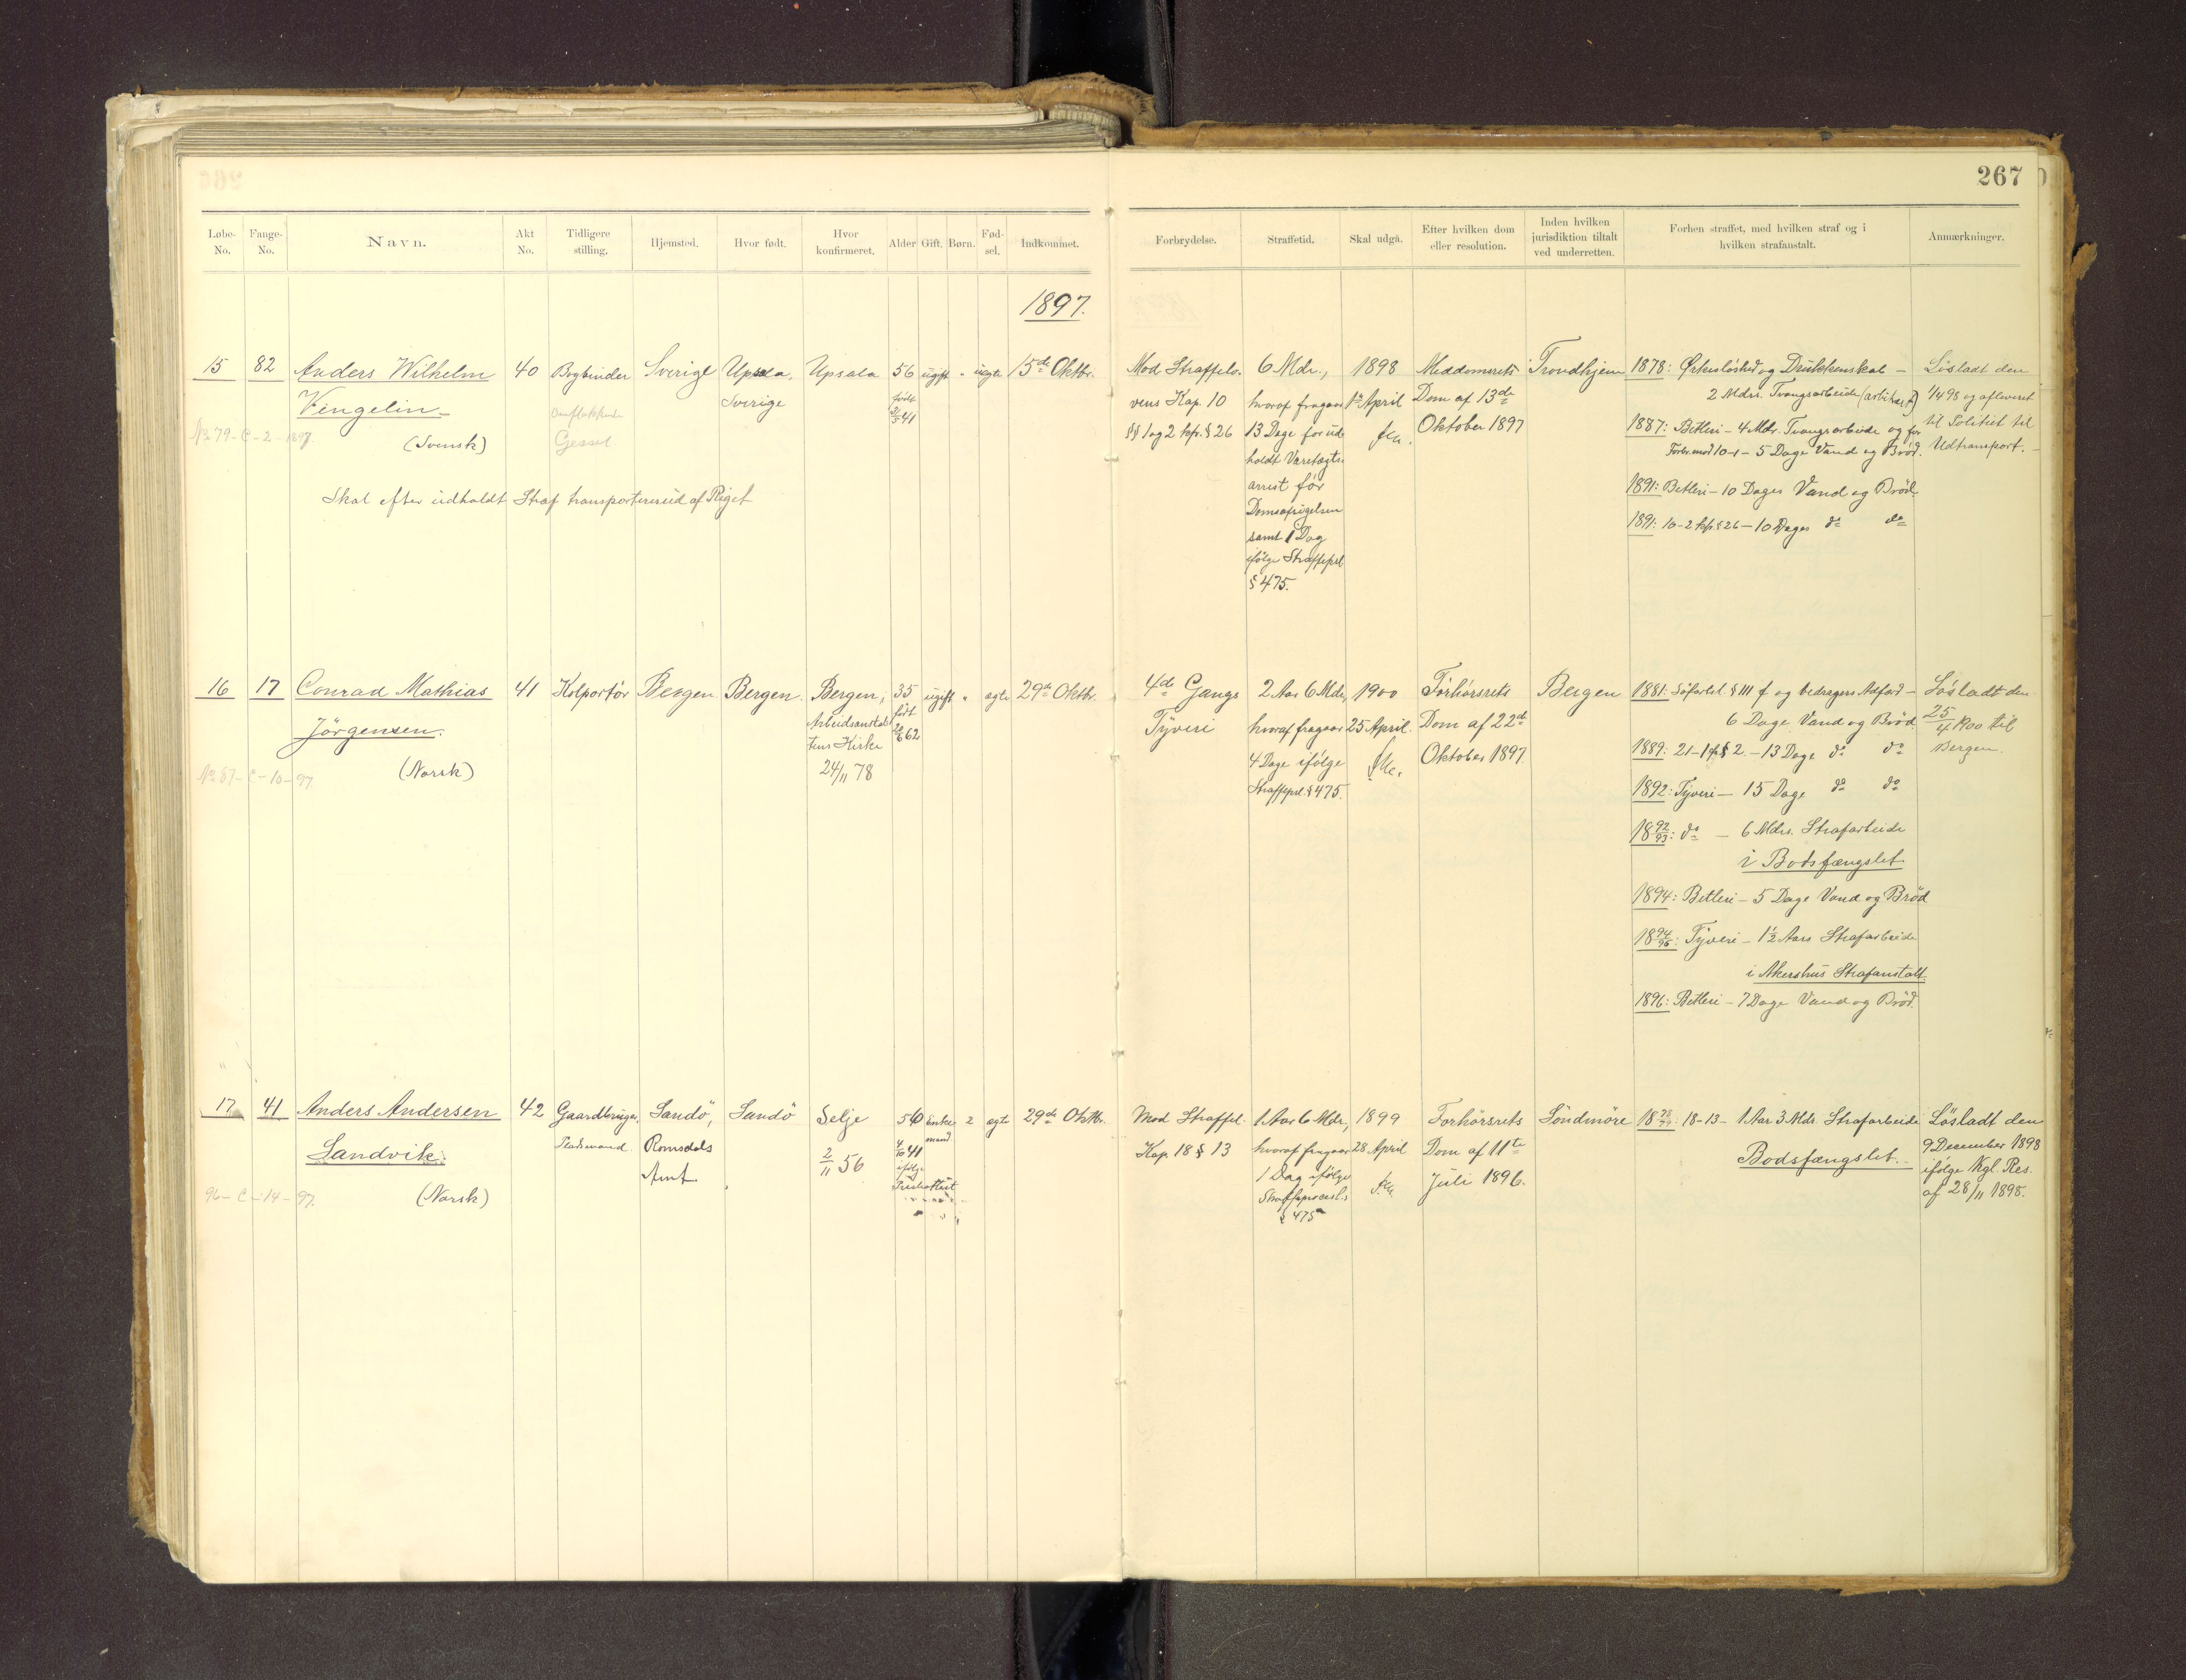 267
Løbe-No. Fange-No. Navn. Akt No. Tidligere stilling. Hjemsted. Hvor født. Hvor konfirmeret. Alder Gift. Børn. Fød-sel. Indkommet.
Forbrydelse. Straffetid. Skal udgå. Efter hvilken dom eller resolution. Inden hvilken jurisdiktion tiltalt ved underretten. Forhen straffet, med hvilken straf og i hvilken strafanstalt. Anmærkninger.
1897.
15 82 Anders Wilhelm 40 Bogbinder Sverige Upsala, Upsala 56 ugift " uegte 15de Oktbr.
Vingelin Sverige født
41
No 79-C-2-1897. (Svensk) Gessel
Skal efter udholdt Straf transporteres ud af Riget
Mod Straffelo- 6 Mdr., 1898 Meddomsrets Trondhjem
vens Kap. 10 hvoraf fragaar 1ste April Dom af 13de
§§ 1 og 2 kfr. § 26 13 Dage for ud- Oktober 1897
holdt Varetægts-
arrest før
Domsafsigelsen
samt 1 Dag
ifølge Straffeprl.
§ 475.
1878: Ørkesløshed og Drukkenskab –
2 Mdrs. Tvangsarbeide (arbitrært)
1887: Betleri – 4 Mdr. Tvangsarbeide og for
Forbr. mod 10-1 – 5 Dage Vand og Brød.
1891: Betleri – 10 Dages Vand og Brød
1891: 10-2 kfr. § 26 – 10 Dages do do
Løsladt den
1/4 98 og afleveret
til Politiet til
Udtransport. –
16 17 Conrad Mathias 41 Kolportør Bergen Bergen Bergen, 35 ugift " egte 29de Oktbr.
Jörgensen. Arbeidsanstal- født
tens Kirke 62
No 87-C-10-97. (Norsk) 24/11 78
4de Gangs 2 Aar 6 Mdr, 1900 Forhørsrets Bergen
Tyveri hvoraf fragaar 25 April. Dom af 22de
4 Dage ifølge Oktober 1897
Straffeprl. § 475.
1881: Søfartsl. § 111 f og bedragersk Adfærd –
6 Dage Vand og Brød
1889: 21-1 kfr § 2 – 13 Dage do do
1892: Tyveri – 15 Dage do do
18 92/93: do – 6 Mdrs. Strafarbeide
i Bodsfængslet
1894: Betleri – 5 Dage Vand og Brød
18 94/96: Tyveri – 1½ Aars Strafarbeide
i Akershus Strafanstalt
1896: Betleri – 7 Dage Vand og Brød.
Løsladt den
25/4 1900 til
Bergen.
17 41 Anders Andersen 42 Gaardbruger, Sandö, Sandö Selje 56 Enke- 2 egte 29de Oktbr.
Sandvik. Pladsmand Romsdals 2/11 56 4/10 41 mand
Amt. ifølge
Presteattest
96-C-14-97. (Norsk)
Mod Straffel. 1 Aar 6 Mdr, 1899 Forhørsrets Söndmöre
Kap. 18 § 13 hvoraf fragaar 28 April Dom af 11te
1 Dag ifølge Juli 1896.
Straffeprocesl.s
§ 475
18-13 – 1 Aar 3 Mdr. Strafarbeide
Bodsfængslet. –
Løsladt den
9 December 1898
ifølge Kgl. Res.
af 28/11 1898.